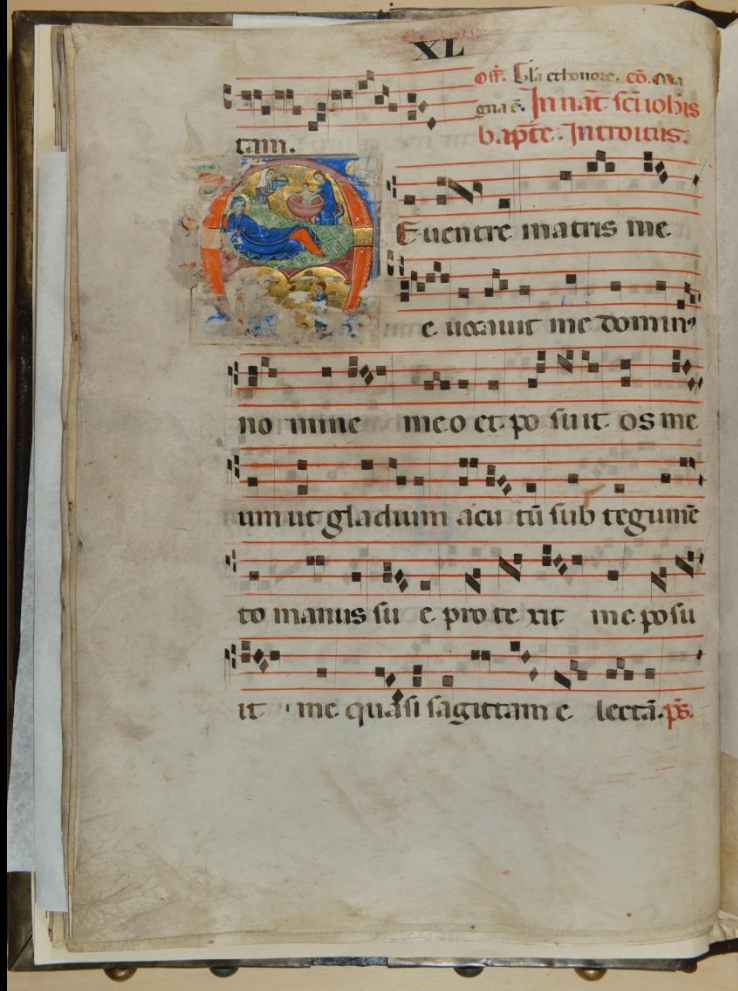 XL
Off. Gla et honore. cō. Ma
gna ē. In nat̄ sc̄i ioh̄is
bapt̄e. Introitus.
tam.
E uentre matris me
e uocauit me domin⁹
no mine meo et po suit os me
um ut gladium acu tū sub tegumē
to manus su e pro te xit me posu
it me quasi sagittam e lectā. ps̄.